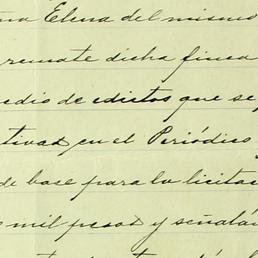 Elena del mismo
remate dicha finca
edio de edictos que se
tivas en el Periódico
de base para la licitac
mil pesos y señalán